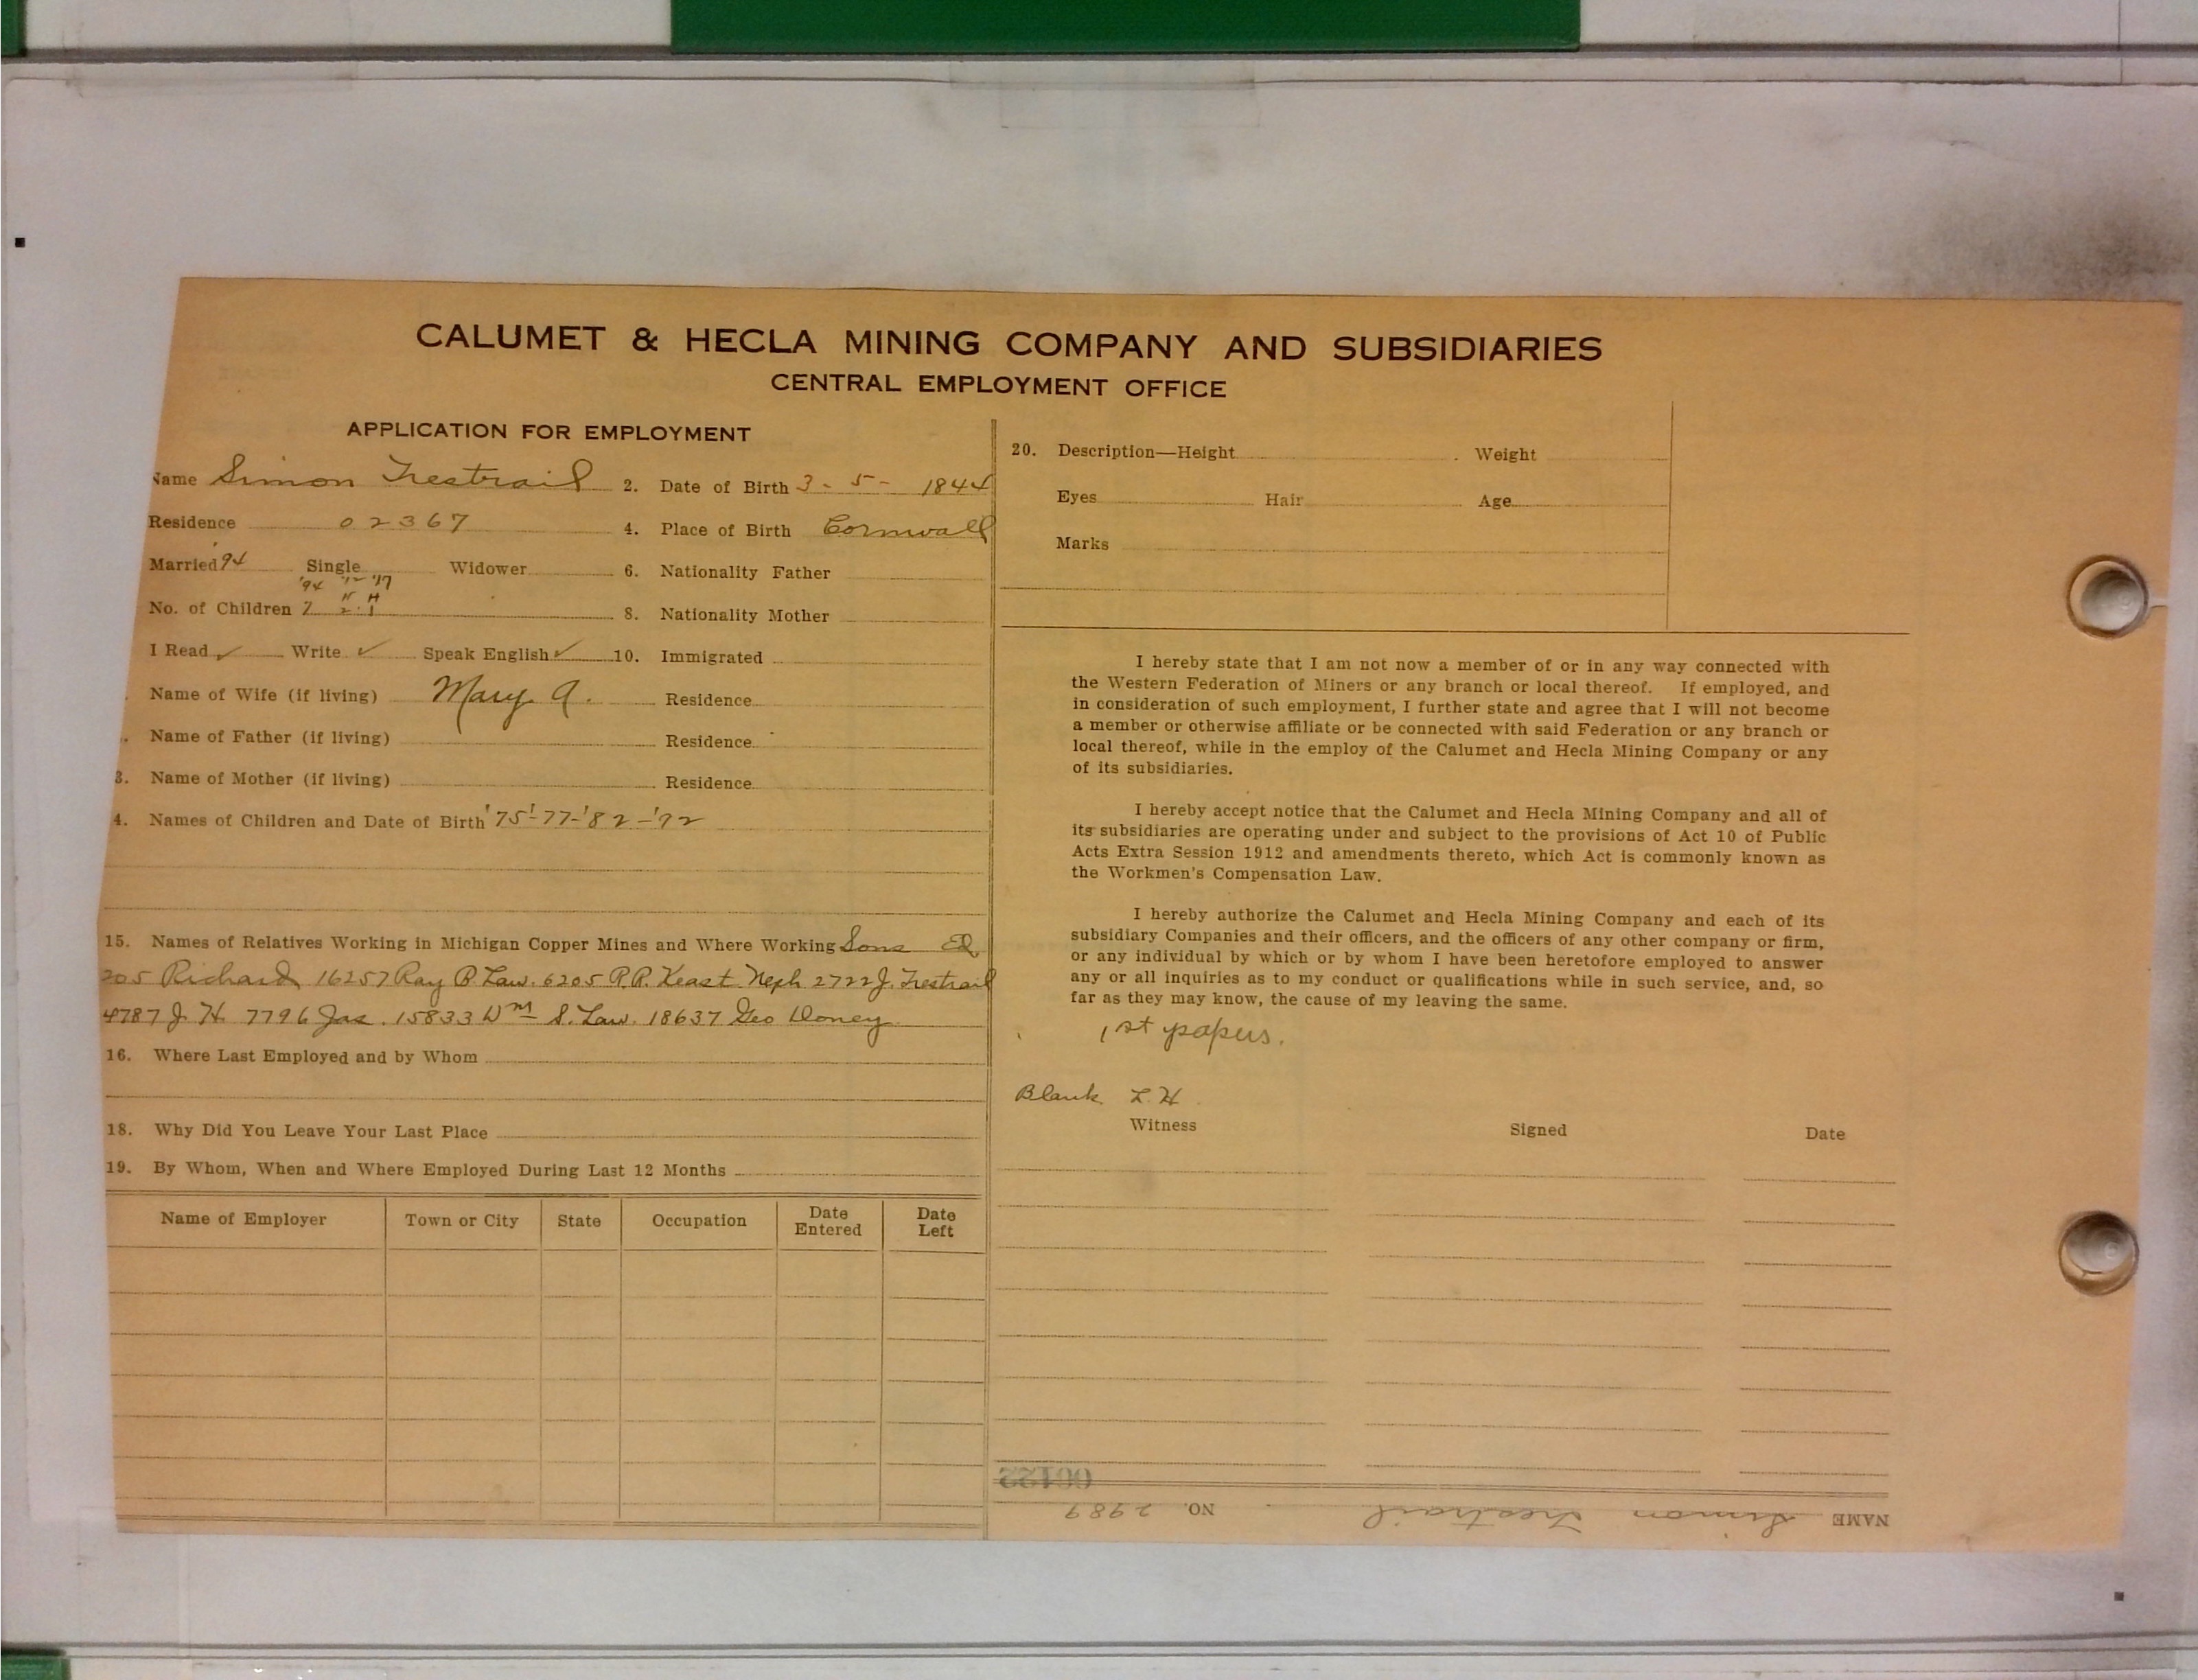 CALUMET & HECLA MINING COMPANY AND SUBSIDIARIES
CENTRAL EMPLOYMENT OFFICE
APPLICATION FOR EMPLOYMENT
Name Simon Trestrail 2. Date of Birth 3 - 5 - 1844
Residence 02367 4. Place of Birth Cornwall
Married '94 Single Widower 6. Nationality Father
'94 '12 '17
H
No. of Children 7 2 1 8. Nationality Mother
I Read ✓ Write ✓ Speak English ✓ 10. Immigrated
Name of Wife (if living) Mary A. Residence
. Name of Father (if living) Residence
3. Name of Mother (if living) Residence
4. Names of Children and Date of Birth '75-'77-'82-'92
15. Names of Relatives Working in Michigan Copper Mines and Where Working Sons Ed
205 Richard 16257 Ray B. Law. 6205 P.R. Keast Neph 2722 J. Trestrail
4787 J. H. 7796 Jas. 15833 Wm S. Law. 18637 Geo Doney
16. Where Last Employed and by Whom
18. Why Did You Leave Your Last Place
19. By Whom, When and Where Employed During Last 12 Months
Name of Employer Town or City State Occupation Date Entered Date Left
20. Description—Height Weight
Eyes Hair Age
Marks
I hereby state that I am not now a member of or in any way connected with
the Western Federation of Miners or any branch or local thereof. If employed, and
in consideration of such employment, I further state and agree that I will not become
a member or otherwise affiliate or be connected with said Federation or any branch or
local thereof, while in the employ of the Calumet and Hecla Mining Company or any
of its subsidiaries.
I hereby accept notice that the Calumet and Hecla Mining Company and all of
its subsidiaries are operating under and subject to the provisions of Act 10 of Public
Acts Extra Session 1912 and amendments thereto, which Act is commonly known as
the Workmen's Compensation Law.
I hereby authorize the Calumet and Hecla Mining Company and each of its
subsidiary Companies and their officers, and the officers of any other company or firm,
or any individual by which or by whom I have been heretofore employed to answer
any or all inquiries as to my conduct or qualifications while in such service, and, so
far as they may know, the cause of my leaving the same.
1st papers.
Blank L.H
Witness Signed Date
00122
NAME Simon Trestrail NO. 2989